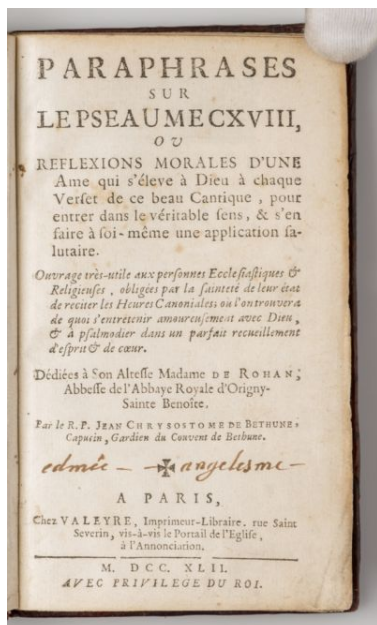 PARAPHRASES
SUR
LE PSEAUME CXVIII,
OU
REFLEXIONS MORALES D'UNE
Ame qui s'éleve à Dieu à chaque
Verset de ce beau Cantique, pour
entrer dans le véritable sens, & s'en
faire à soi-même une application sa-
lutaire.
Ouvrage très-utile aux personnes Ecclesiastiques &
Religieuses, obligées par la sainteté de leur état
de reciter les Heures Canoniales; où l'on trouvera
de quoi s'entretenir amoureusement avec Dieu,
& à psalmodier dans un parfait recueillement
d'esprit & de cœur.
Dédiées à Son Altesse Madame DE ROHAN,
Abbesse de l'Abbaye Royale d'Origny-
Sainte Benoîte.
Par le R. P. JEAN CHRYSOSTOME DE BETHUNE,
Capucin, Gardien du Convent de Bethune.
edmée - angelesme -
A PARIS,
Chez VALEYRE, Imprimeur-Libraire, rue Saint
Severin, vis-à-vis le Portail de l'Eglise,
à l'Annonciation.
M. DCC. XLII.
AVEC PRIVILEGE DU ROI.